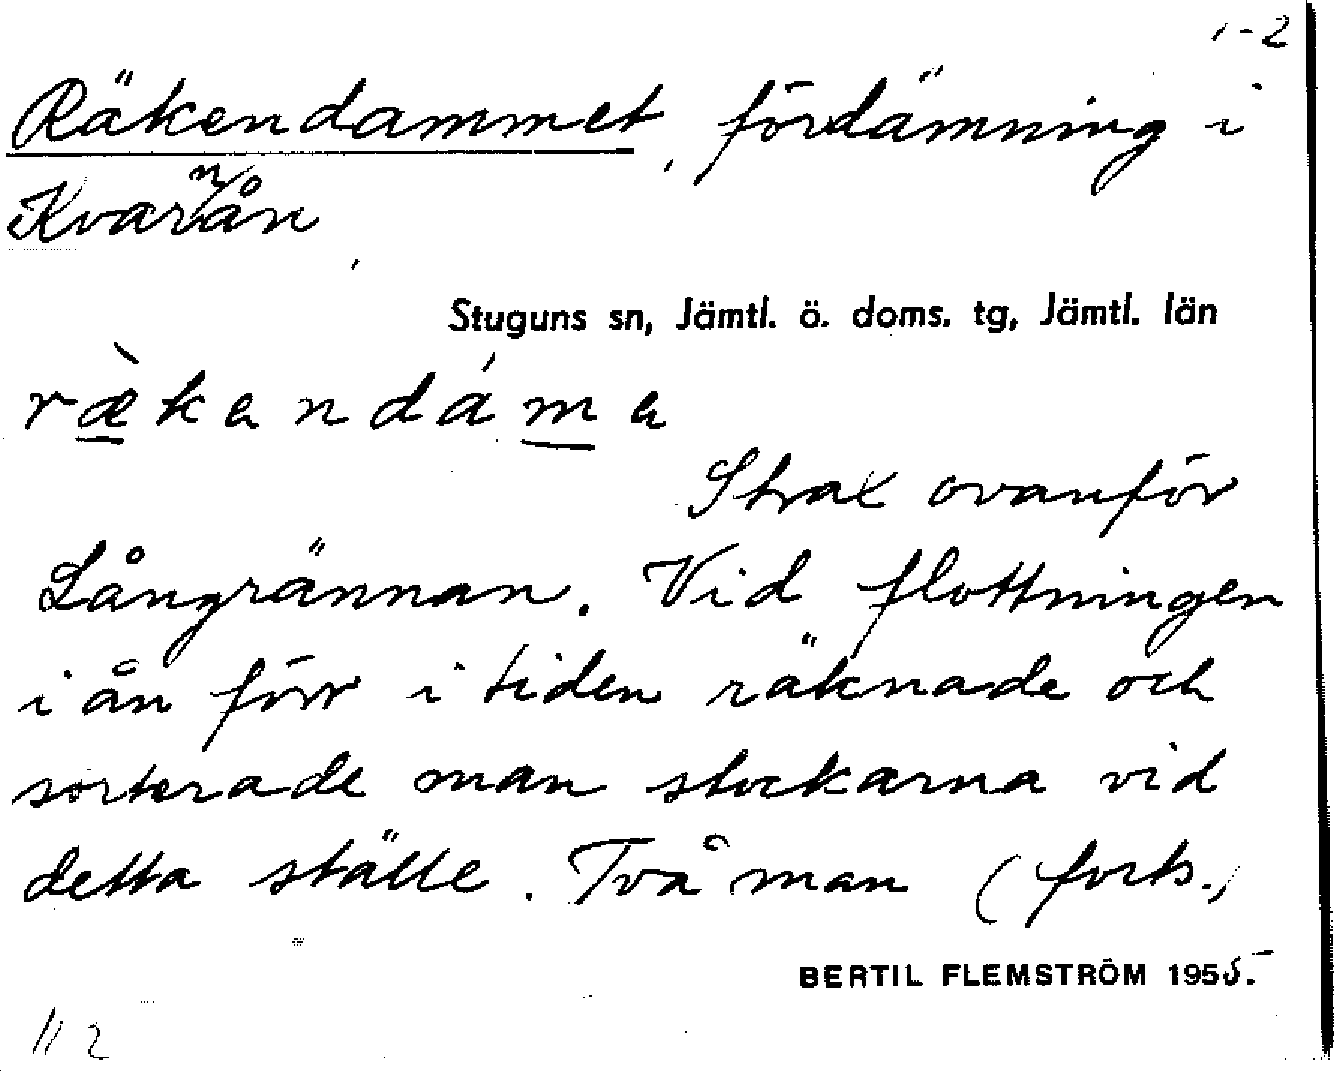 1-2
Räkendammet, fördämning i
Kvarnån,
Stuguns sn, Jämtl. ö. doms. tg, Jämtl. län
ræ̀kendáme
Strax ovanför
Långrännan. Vid flottningen
i ån förr i tiden räknade och
sorterade man stockarna vid
detta ställe. Två man (forts.)
BERTIL FLEMSTRÖM 1955.